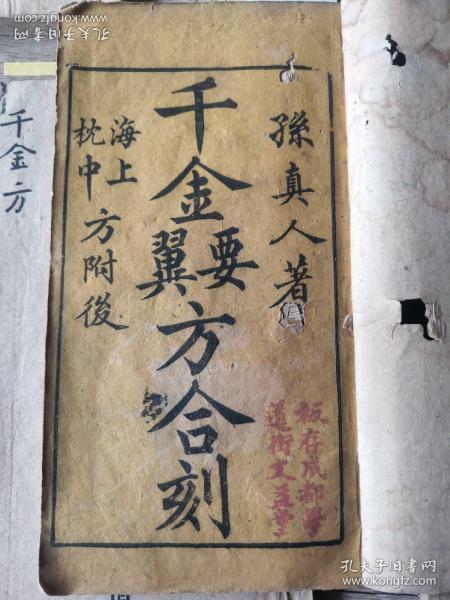 孫真人著
板存成都學
道街文堂
千金要翼方合刻
海上
枕中
方附後
千金方
孔夫子旧书网
kongfz.com
孔夫子旧书网
kongfz.com